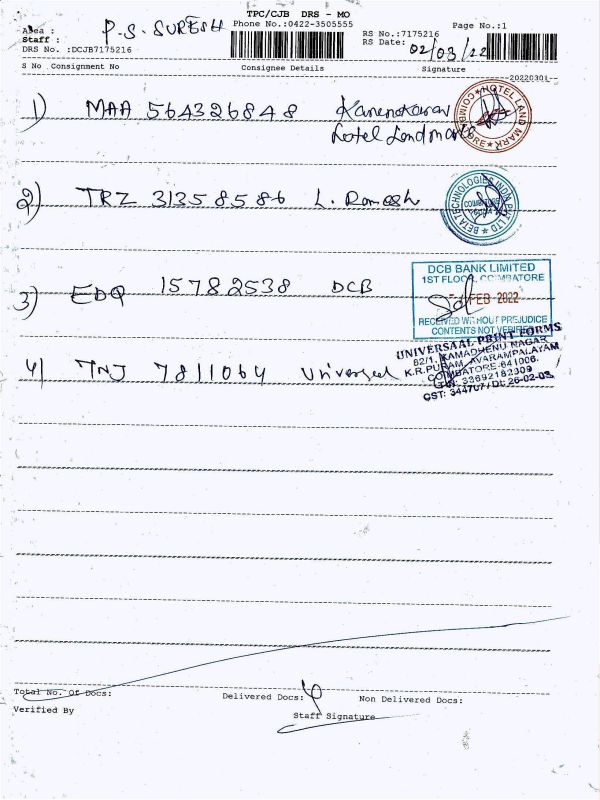 TPC/CJB DRS - MO
Area : P.S. SURESH Phone No.:0422-3505555 Page No.:1
Staff : RS No.:7175216
DRS No. :DCJB7175216 RS Date: 02/03/22
S No Consignment No Consignee Details Signature
20220301
1) MAA 564326848
Hotel Landmark
HOTEL LAND MARK
2) TRZ 31358586 L. Ramesh
BETA TECHNOLOGIES INDIA PVT LTD
3) EDQ 15782538 DCB
DCB BANK LIMITED
1ST FLOOR, COIMBATORE
FEB 2022
RECEIVED WITHOUT PREJUDICE
CONTENTS NOT VERIFIED
4) TNJ 7811064 Universal
UNIVERSAAL PRINT FORMS
82/1, KAMADHENU NAGAR
K.R.PURAM, AVARAMPALAYAM
COIMBATORE-641006.
33692182309
CST: 344707 / Dt. 26-02-03
Total No. Of Docs: Delivered Docs: 4 Non Delivered Docs:
Verified By Staff Signature